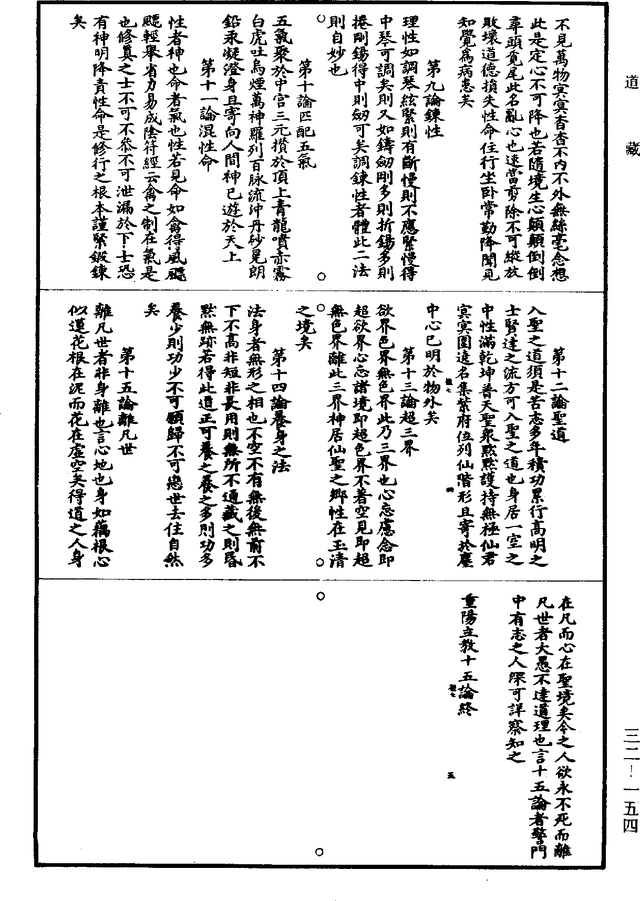 道藏
不見萬物冥冥杳杳不內不外無絲毫念想
此是定心不可降也若隨境生心顛顛倒倒
尋頭覓尾此名亂心也速當剪除不可縱放
敗壞道德損失性命住行坐臥常勤降聞見
知覺爲病患矣
第九論鍊性
理性如調琴絃緊則有斷慢則不應緊慢得
中琴可調矣則又如鑄劒剛多則折錫多則
捲剛錫得中則劒可矣調鍊性者體此二法
則自妙也
第十論匹配五氣
五氣聚於中宮三元攢於頂上青龍噴赤霧
白虎吐烏煙萬神羅列百脉流沖丹砂晃朗
鉛汞凝澄身且寄向人間神已遊於天上
第十一論混性命
性者神也命者氣也性若見命如禽得風飄
飄輕舉省力易成陰符經云禽之制在氣是
也修真之士不可不叅不可泄漏於下士恐
有神明降責性命是修行之根本謹緊鍛鍊
矣
第十二論聖道
入聖之道須是苦志多年積功累行高明之
士賢達之流方可入聖之道也身居一室之
中性滿乾坤普天聖衆默默護持無極仙君
冥冥圍遶名集紫府位列仙階形且寄於塵
中心已明於物外矣
第十三論超三界
欲界色界無色界此乃三界也心忘慮念即
超欲界心忘諸境即超色界不著空見即超
無色界離此三界神居仙聖之鄉性在玉清
之境矣
第十四論養身之法
法身者無形之相也不空不有無後無前不
下不高非短非長用則無所不通藏之則昏
默無跡若得此道正可養之養之多則功多
養少則功少不可願歸不可戀世去住自然
矣
第十五論離凡世
離凡世者非身離也言心地也身如藕根心
似蓮花根在泥而花在虛空矣得道之人身
四
在凡而心在聖境矣今之人欲永不死而離
凡世者大愚不達道理也言十五論者警門
中有志之人深可詳察知之
重陽立教十五論終
五
三二—一五四